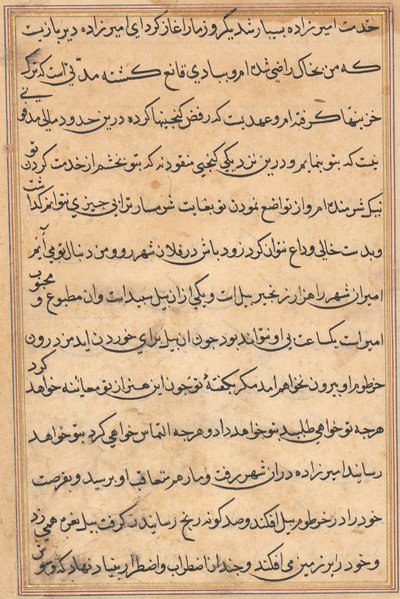 خدمت امیرزاده بسیار شد یکروز مار اغاز کرد ای امیرزاده دیر باز یست
که من بخاک راضی شده ام و ببادی قانع کشته مدتی است که ترک
خزینها کرفته ام و عهدیست که رفض کنجینها کرده درین حدود مالی مدفون
نیست که بتو بنمایم و درین نزدیکی کنجی منقود نه که بتو بخشم از خدمت کردن تو
نیک شرمنده ام و از تواضع نمودن تو بغایت شرمسار ترا بی چیزی نتوانم کذاشت
و بدست خالی وداع نتوان کرد زود باش در فلان شهر رو و من دنبال تو می آیم
امیر ان شهر را هزار زنجیر پیل است و یکی از ان پیل سپید است و ان مطبوع و محبوب
امیر است یکساعت بی او نتواند بود چون ان پیل برای خوردن اید من درون
خرطوم او بیرون نخواهم امد مکر بکفتهٔ تو چون این هنر از تو معاینه خواهد کرد
هرچه تو خواهی طلبید بتو خواهد داد و هرچه التماس خواهی کرد بتو خواهد
رسانید امیرزاده در ان شهر رفت و مار هم متعاقب او برسید و بفرصت
خود را در خرطوم پیل افکند و صد کونه رنج رسانیدن کرفت پیل نعره همی زد
و خود را بر زمین می افکند و چندان اضطراب و اضطرار بنیاد نهاد که